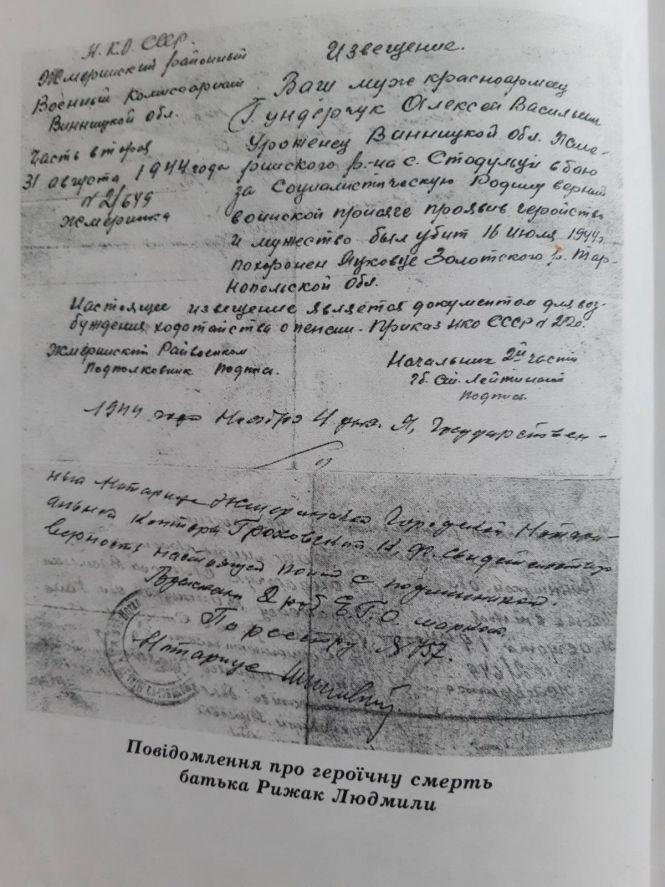 Н.К.О. СССР.
Жмеринский районный
Военный Комиссариат
Винницкой обл.
Часть вторая
31 августа 1944 года
№ 2/649
Жмеринка
Извещение.
Ваш муж красноармеец
Гундерчук Олексей Васильев
Уроженец Винницкой обл. Жме-
ринского р-на с. Стодульци в бою
за Социалистическую Родину верный
воинской присяге проявив геройство
и мужество был убит 16 июля 1944 г.
похоронен Золотского р. Тар-
нопольской обл.
Настоящее извещение является документом для воз-
буждения ходотайства о пенсии. Приказ НКО СССР №
Жмеринский Райвоенком
Подполковник подпись.
Начальник 2й части
Гб. Ст. Лейтинант
подпись.
1944 года Ноября 4 дня. Я, Государствен-
ный Нотариус Жмеринской Городской Нотари-
альной Конторы Гроховская К. Ф. свидетельствую
верность настоящей копии с подлинником.
Взыскано 2 руб. Е.Г.О марками
По реестру № 757.
Нотариус
Повідомлення про героїчну смерть
батька Рижак Людмили